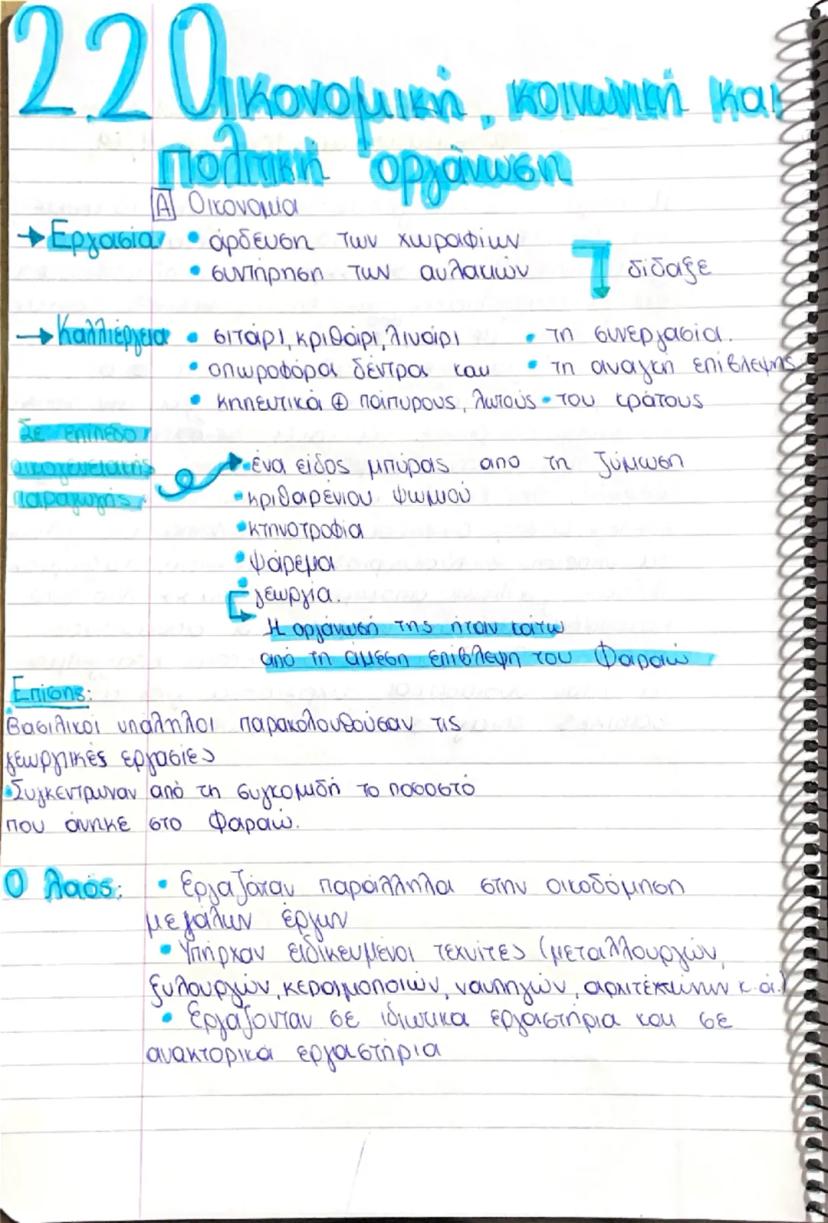 2.2 Οικονομική, κοινωνική και
πολιτική οργάνωση
Α Οικονομία
→ Εργασία • άρδευση των χωραφιών
• συντήρηση των αυλακιών διδαξε
→ Καλλιέργεια • σιτάρι, κριθάρι, λινάρι • τη συνεργασία.
• οπωροφόρα δέντρα και • τη αναγκη επίβλεψης
• κηπευτικά ⊕ πάπυρους, λωτούς • του κράτους
Σε επίπεδο
οικογενειακής
παραγωγής
• ένα είδος μπύρας απο τη ζύμωση
• κριθαρένιου ψωμιού
• κτηνοτροφία
• ψάρεμα
• γεωργία.
Η οργάνωσή της ήταν κάτω
από τη άμεση επίβλεψη του Φαραώ
Επίσης:
Βασιλικοί υπάλληλοι παρακολουθούσαν τις
γεωργικές εργασίες
• Συγκέντρωναν από τη συγκομιδή το ποσοστό
που άνηκε στο Φαραώ.
Ο λαός: • Εργαζόταν παράλληλα στην οικοδόμηση
μεγάλων έργων
• Υπήρχαν ειδικευμένοι τεχνίτες (μεταλλουργών,
ξυλουργών, κεραμοποιών, ναυπηγών, αρχιτεκτόνων κ.ά.)
• Εργάζονταν σε ιδιωτικά εργαστήρια και σε
ανακτορικά εργαστήρια